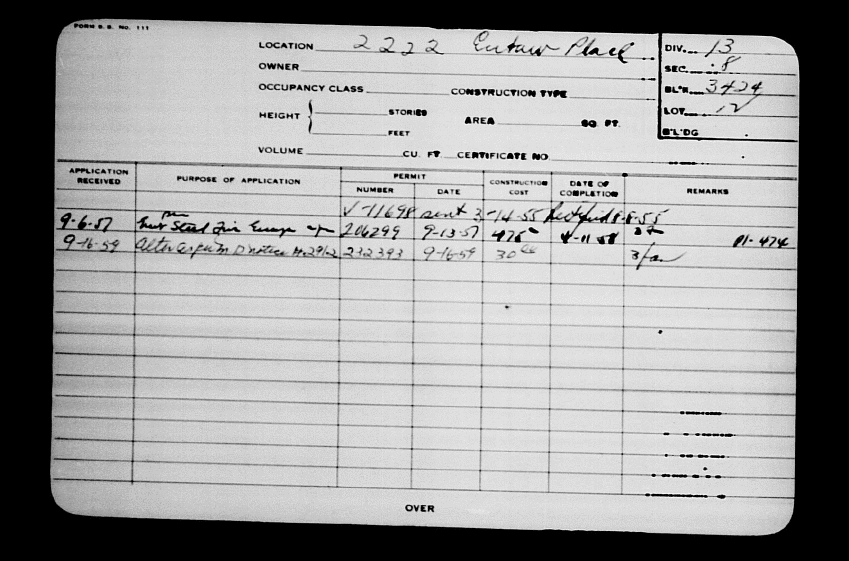 FORM B. B. NO. 111
LOCATION 2222 Eutaw Place DIV. 13
OWNER SEC. 8
OCCUPANCY CLASS CONSTRUCTION TYPE BL'K 3424
HEIGHT STORIES FEET AREA SQ. FT. LOT 12
B'L'DG
VOLUME CU. FT. CERTIFICATE NO
APPLICATION RECEIVED PURPOSE OF APPLICATION PERMIT NUMBER DATE CONSTRUCTION COST DATE OF COMPLETION REMARKS
V-11698 sent 3-14-55 Rectified 8-8-55
9-6-57 Steel Fire Escape 206299 9-13-57 475 4-11-58 P1-474
9-16-59 Alter as per D notice H-2912 232393 9-16-59 30
OVER